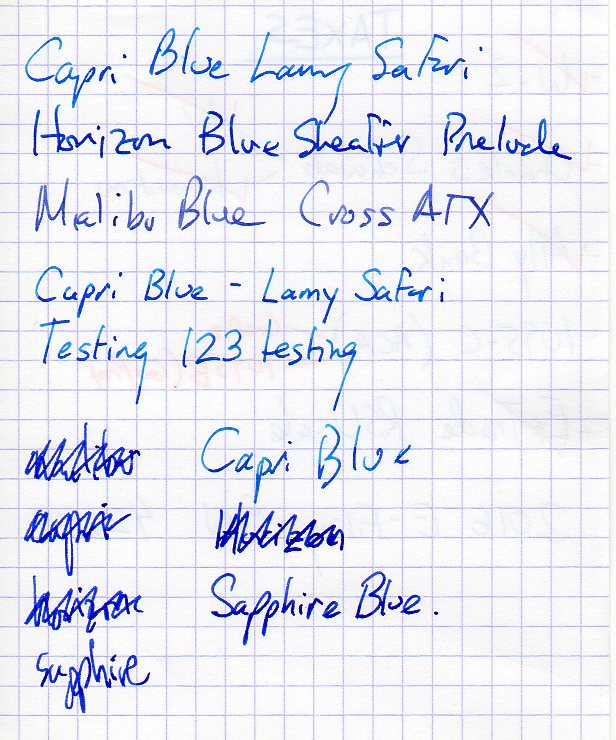 Capri Blue Lamy Safari
Horizon Blue Sheaffer Prelude
Malibu Blue Cross ATX
Capri Blue - Lamy Safari
Testing 123 testing
Capri Blue
Horizon
Sapphire Blue.
sapphire